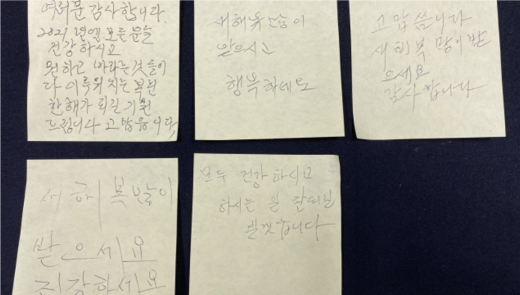 여러분 감사합니다.
2021년엔 모든분들
건강하시고
원하고 바라는것들이
다 이루워지는 복된
한해가 되길 기원
드립니다 고맙습니다.
새해복 많이
받으시고
행복하세요
고맙씀니다
새해복 많이받
으세요
감사합니다
새해복많이
받으세요
건강하세요
모두 건강하시고
하시는 일 잘되
실것습니다